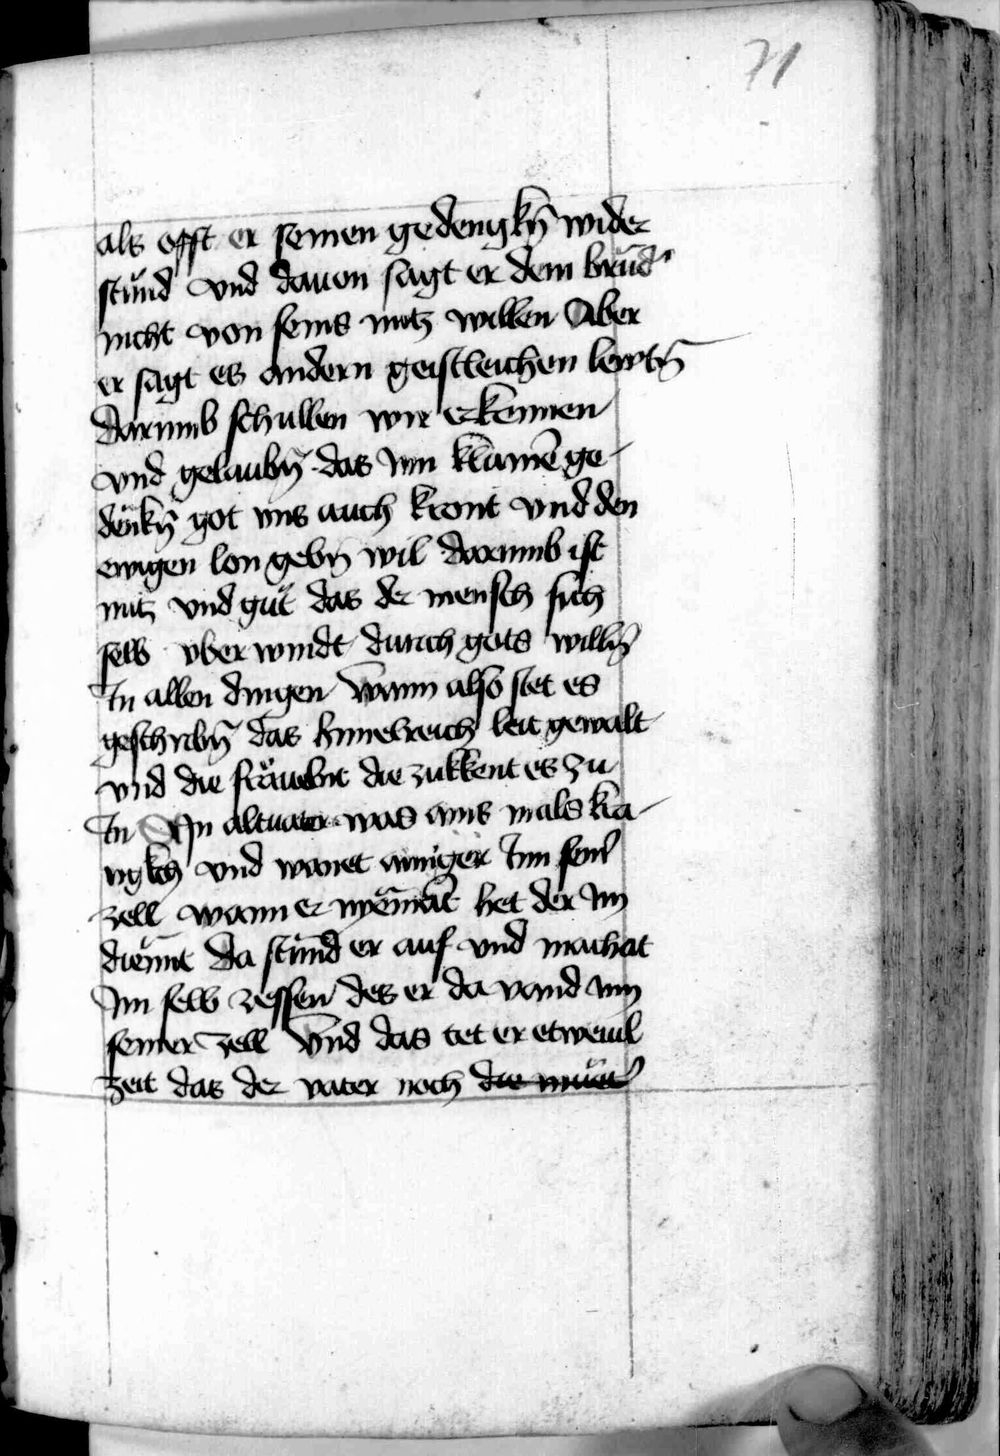 71
als offt er seinen gedengkn̄ wider
stůnd vnd dauon sagt er dem brůd'
nicht von seins nutz willen Aber
er sagt es andern geistleichen lewtn̄
Darumb schullen wir erkennen
vnd gelaubn̄ das Inn klainē ge-
denkn̄ got vns auch kront vnd den
ewigen lon gebn̄ wil darumb ist
nutz vnd gůt das der mensch sich
selb vberwindt durch gots willn̄
In allen dingen Wann also stet es
geschribn̄ das himelreich leit gewalt
vnd die frävelnt die zukkent es zu
In Ain altuater was ains mals kra-
ngkch vnd wonet ainiger Inn sein'
zell wann er nyemāt het der Im
dient Da stůnd er auf vnd machat
Im selb zessen des er da vand inn
seiner zell Vnd das tet er etweuil
zeit das der vater noch die muet'